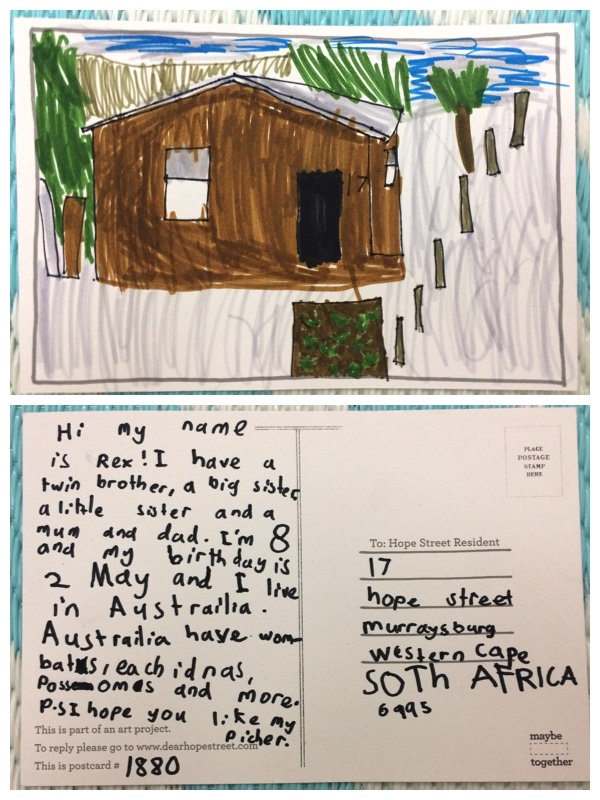 17
Hi my name
is Rex! I have a
twin brother, a big sister
a little sister and a
mum and dad. I'm 8
and my birthday is
2 May and I live
in Austrailia.
Austrailia have wom
batts, each id nas,
Possomes and more.
P.S I hope you like my
Picher.
This is part of an art project.
To reply please go to www.dearhopestreet.com
This is postcard # 1880
PLACE
POSTAGE
STAMP
HERE
To: Hope Street Resident
17
hope street
murraysburg
western cape
SOTh AFRICA
6995
maybe
together